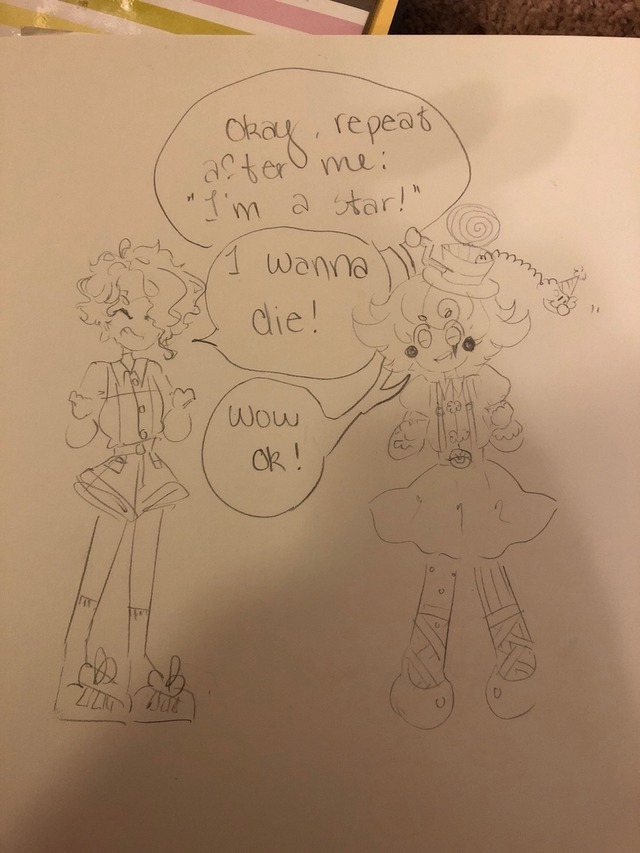 Okay, repeat
after me:
"I'm a star!"
I wanna
die!
Wow
ok!